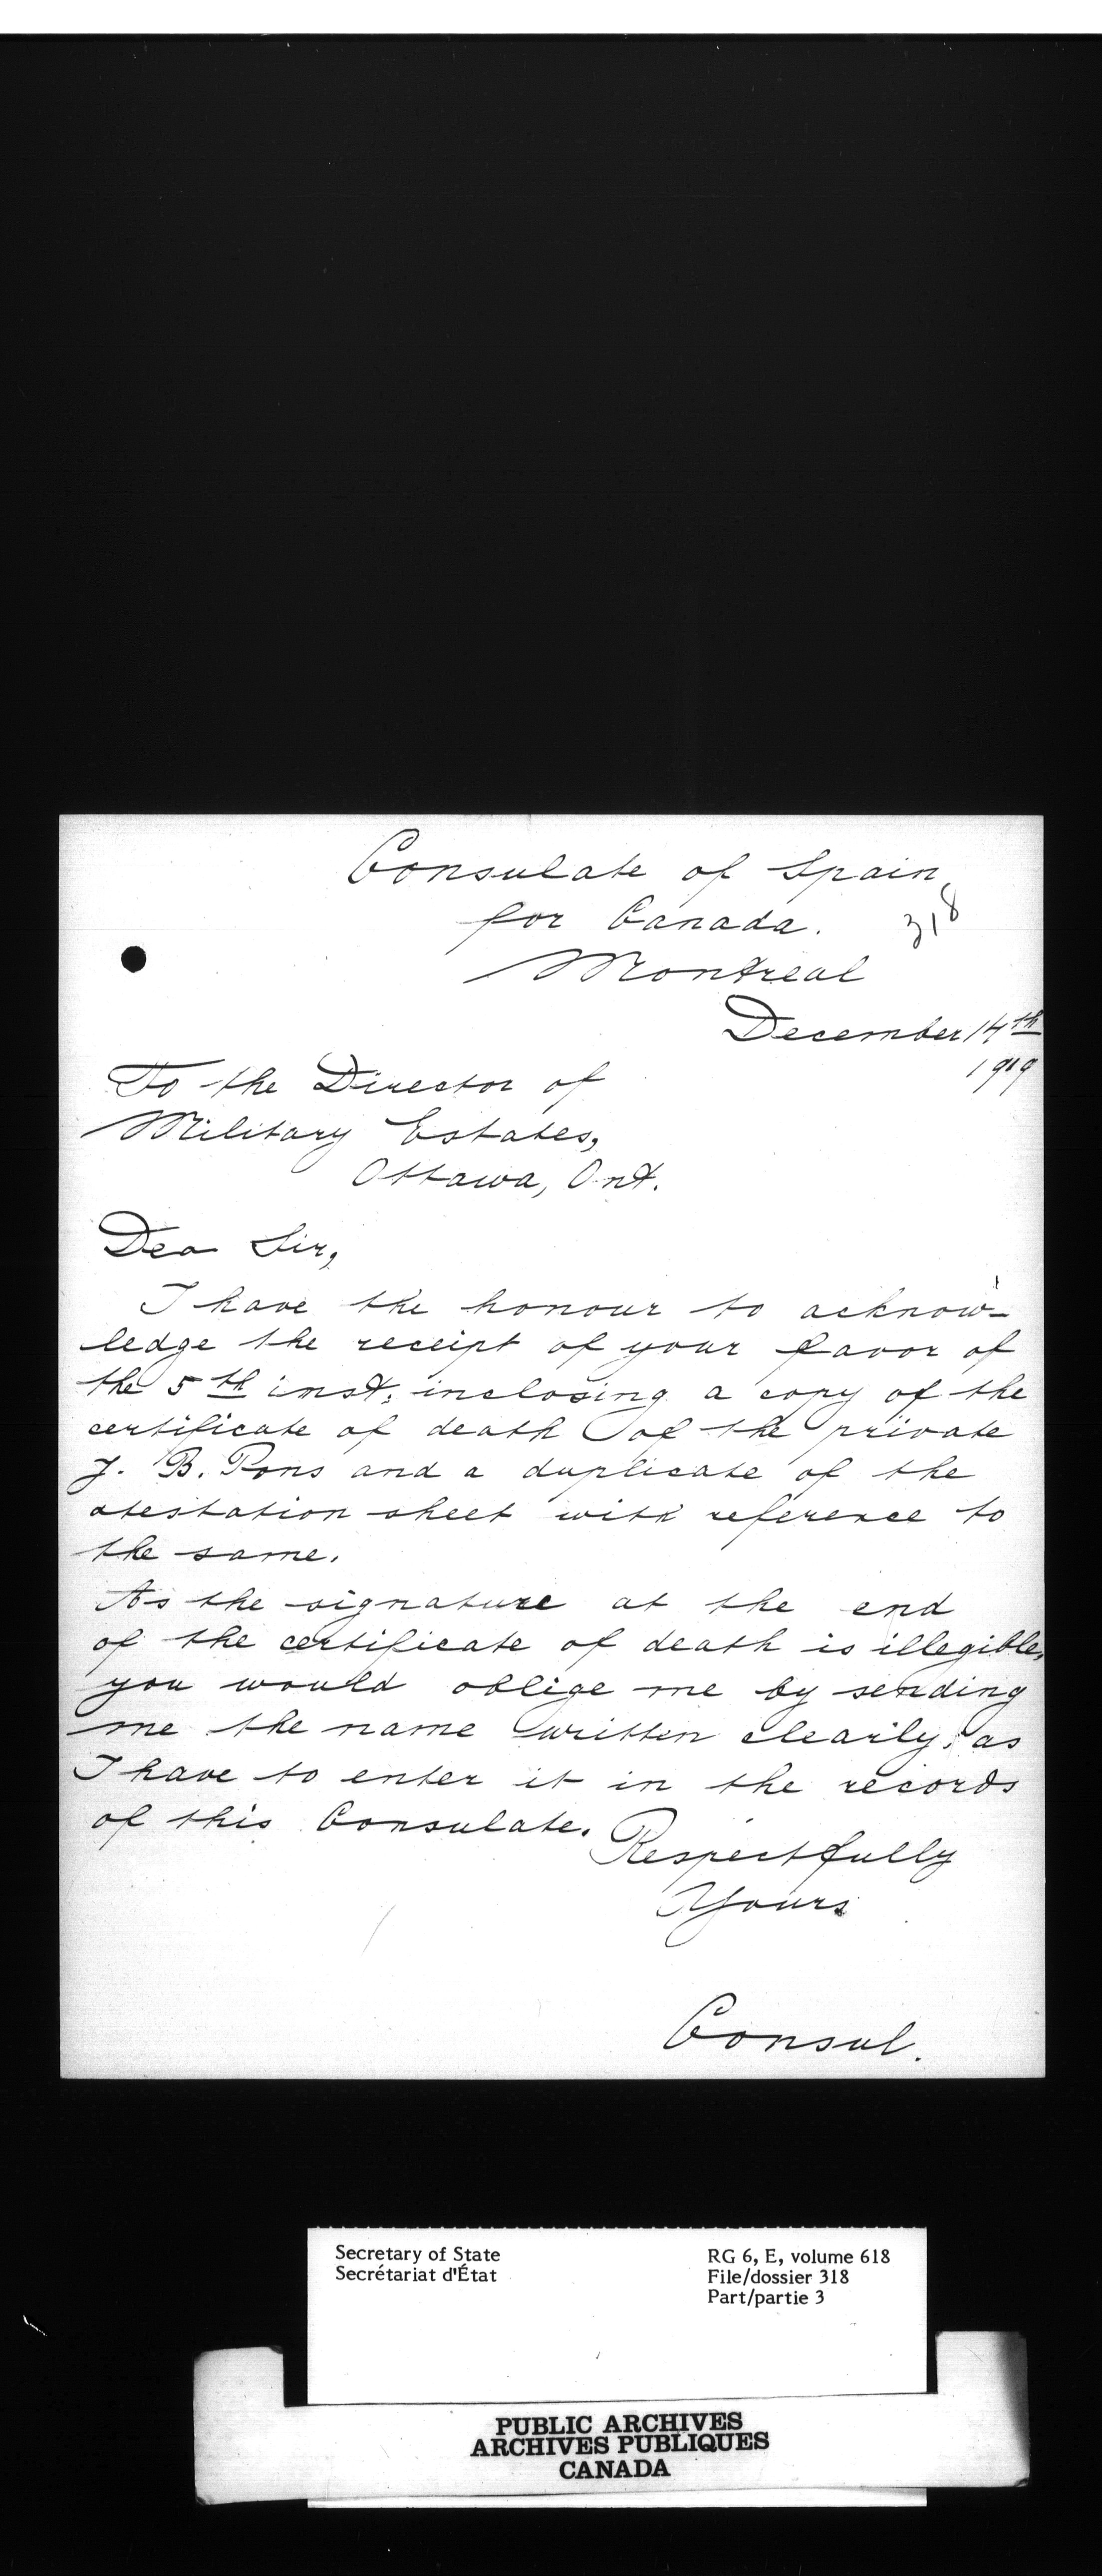 Consulate of Spain
for Canada.
318
Montreal
December 14th
1919
To the Director of
Military Estates,
Ottawa, Ont.
Dea Sir,
I have the honour to acknow-
ledge the receipt of your favor of
the 5th inst; inclosing a copy of the
certificate of death of the private
J. B. Pons and a duplicate of the
atestation sheet with reference to
the same.
As the signature at the end
of the certificate of death is illegible,
you would oblige me by sending
me the name written clearly, as
I have to enter it in the records
of this Consulate.
Respectfully
Yours
Consul.
Secretary of State
Secrétariat d'État
RG 6, E, volume 618
File/dossier 318
Part/partie 3
PUBLIC ARCHIVES
ARCHIVES PUBLIQUES
CANADA